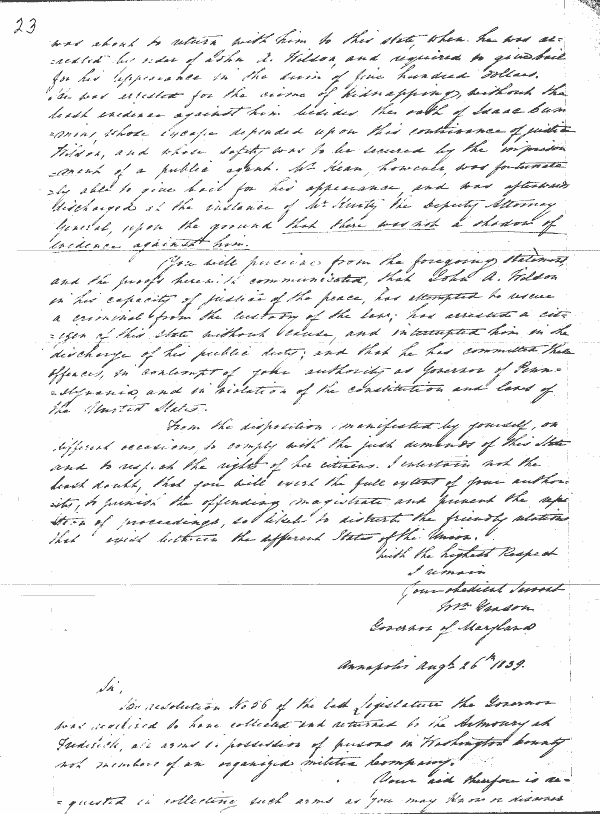 23
was about to return with him to this state, when he was ar-
-rested by order of John A. Wilson, and required to give bail
for his appearance in the sum of five hundred Dollars.
He was arrested for the crime of Kidnapping, without the
least evidence against him besides the oath of Isaac Cum
=mins, whose escape depended upon this contrivance of justice
Wilson, and whose safety was to be secured by the imprison
=ment of a public agent. Mr Kean, however, was fortunate
=ly able to give bail for his appearance, and was afterwards
discharged at the instance of Mr the Deputy Attorney
General, upon the ground that there was not a shadow of
evidence against him.
You will perceive from the foregoing statement,
and the proofs herewith communicated, that John A. Wilson
in his capacity of justice of the peace, has attempted to rescue
a criminal from the custody of the law; has arrested a citi-
=zen of this State without cause, and interrupted him in the
discharge of his public duty; and that he has committed these
offences, in contempt of your authority as Governor of Penn=
=sylvania, and in violation of the constitution and laws of
the United States.
From the disposition, manifested by yourself, on
different occasions, to comply with the just demands of this State
and to respect the rights of her citizens. I entertain not the
least doubt, that you will exert the full extent of your author-
ity, to punish the offending magistrate and prevent the repe
tition of proceedings, so likely to disturb the friendly relations
that exist between the different States of the Union.
With the highest Respect
I remain
Your obedient Servant
Wm Grason
Governor of Maryland
Annapolis Augt 26th 1839.
Sir,
By resolution No 56 of the last Legislature the Governor
was required to have collected and returned to the Armoury at
Frederick, all arms in possession of persons in Washington County
not members of an organized militia Company.
Your aid therefore is re=
=quested in collecting such arms as you may know or discover